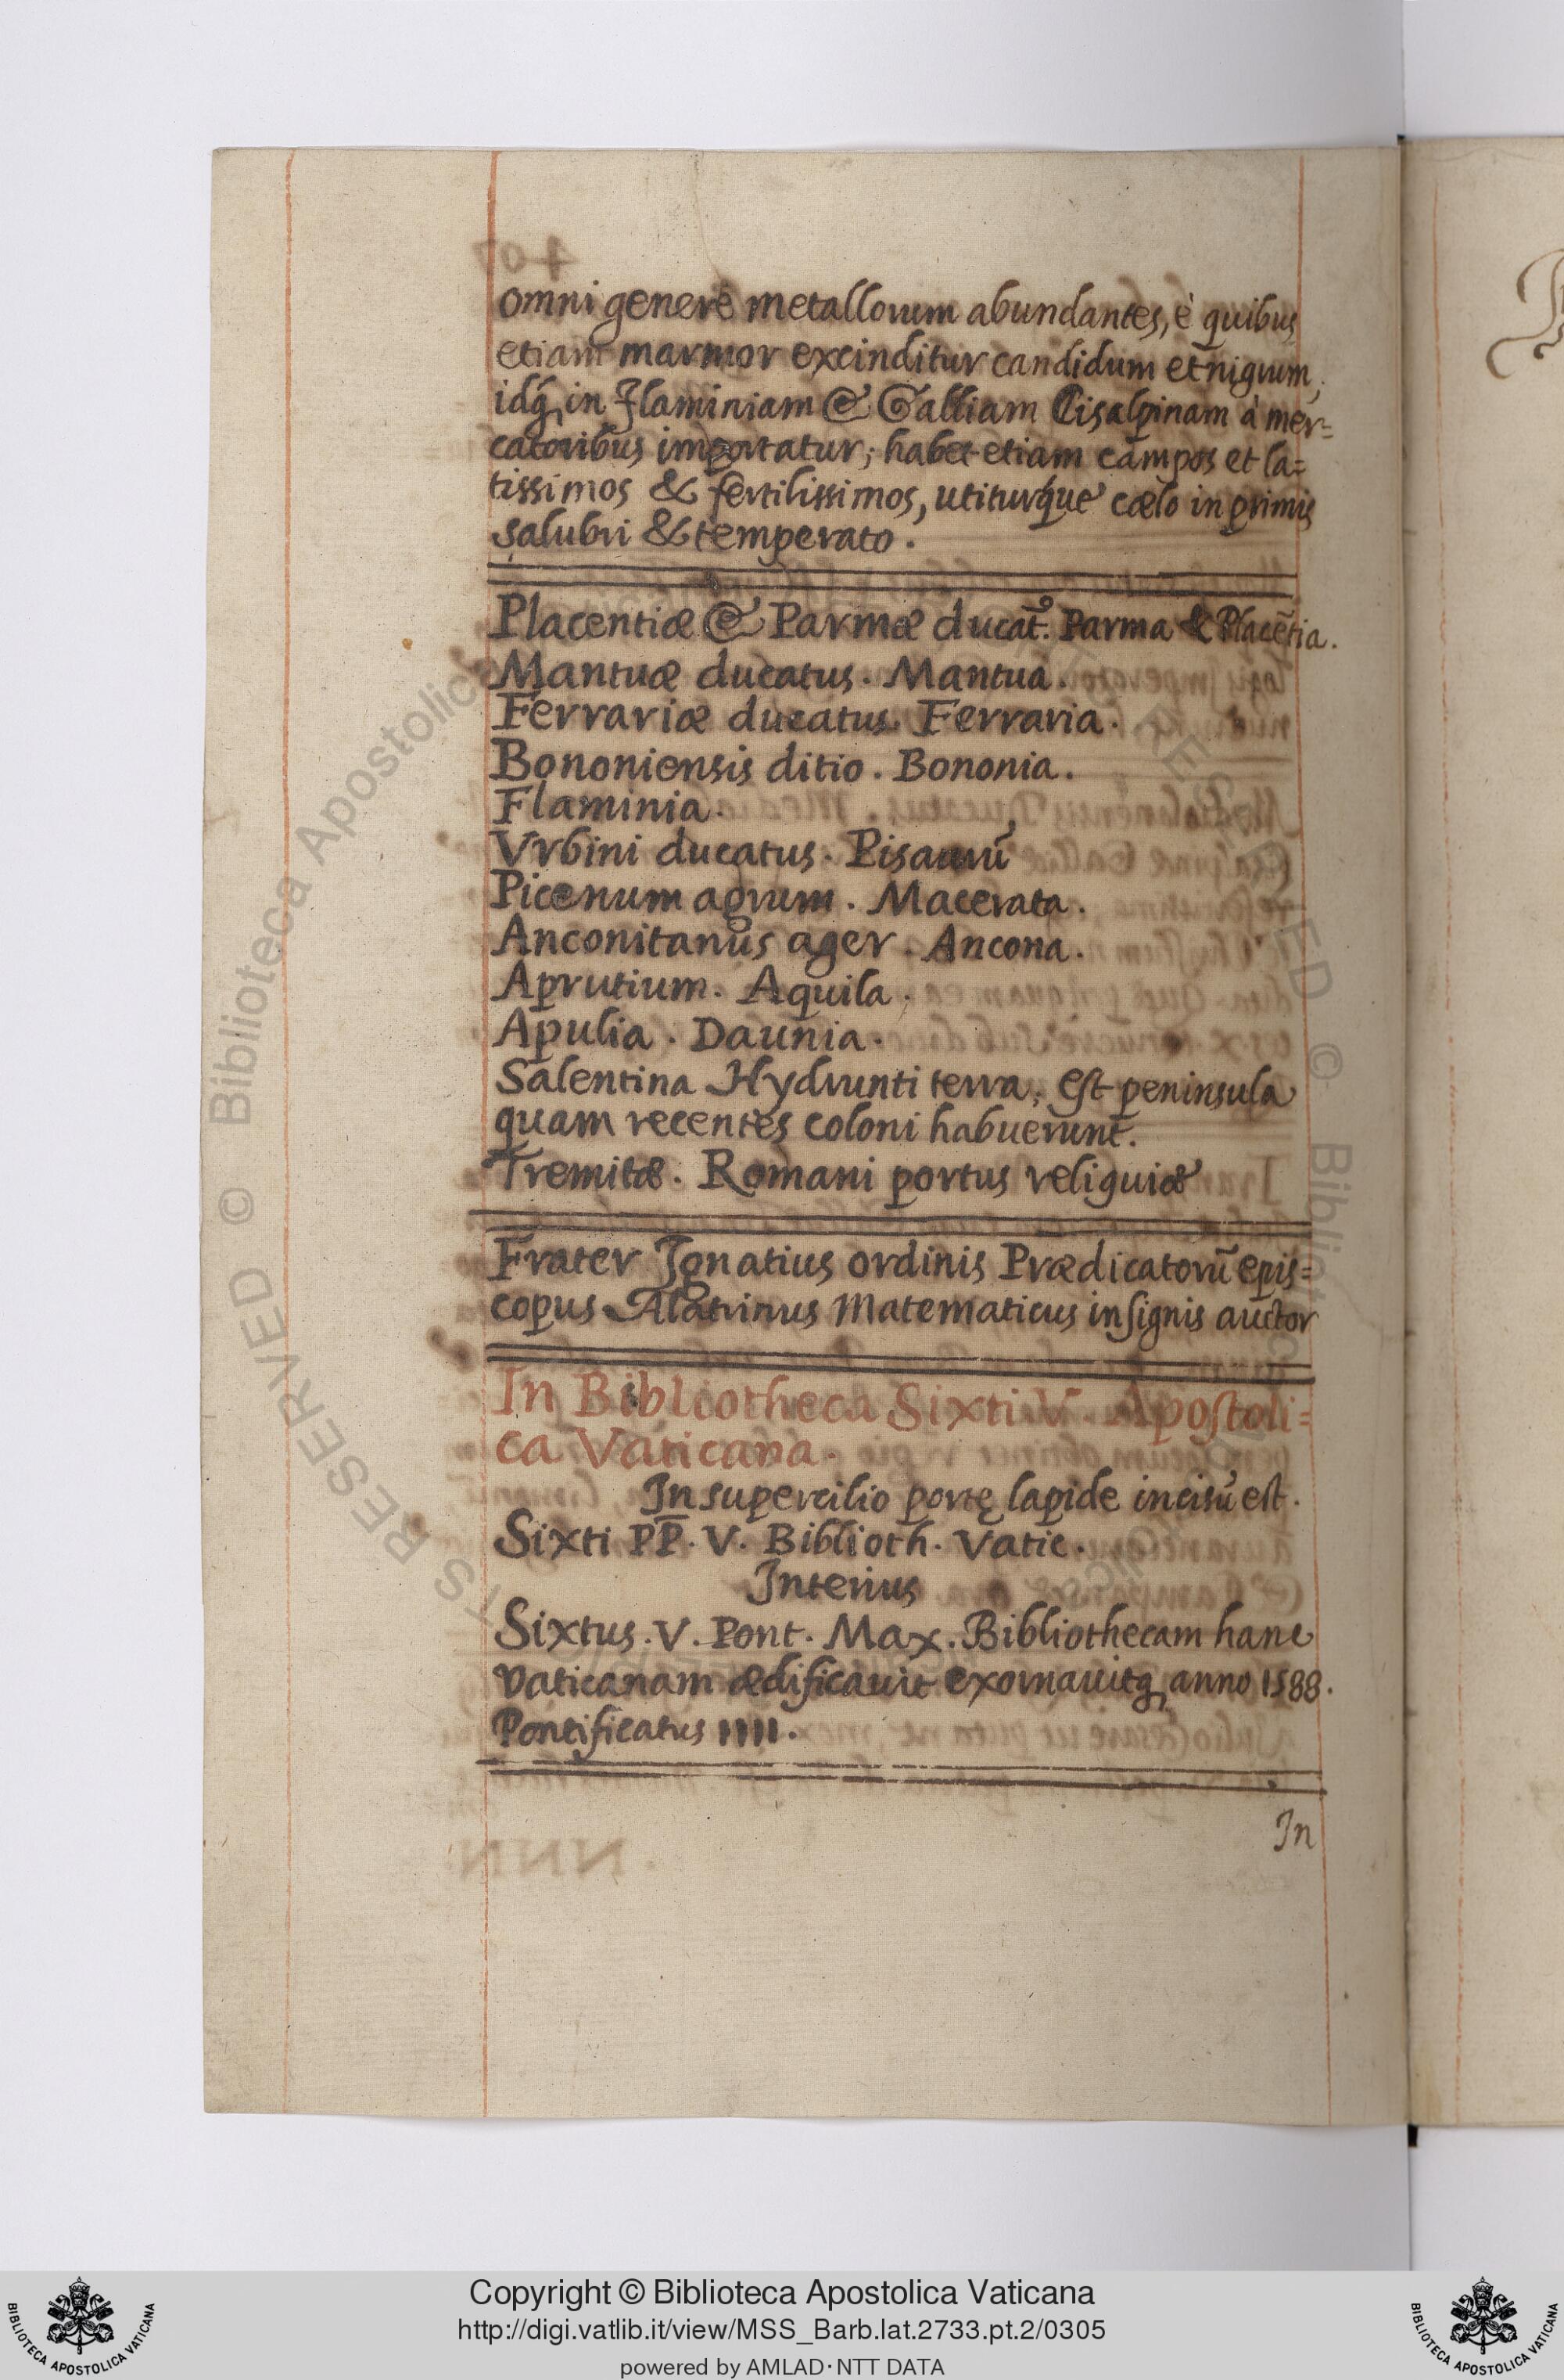 omni genere metallorum abundantes, è quibus
etiam marmor exscinditur candidum et nigrum,
idq́ in Flaminiam & Galliam Cisalpinam à mer=
catoribus importatur; habet etiam campos et la=
tissimos & fertilissimos, utiturq́ue cælo in primis
salubri & temperato.
Placentiæ & Parmæ ducat9. Parma & Placẽtia.
Mantuæ ducatus. Mantua.
Ferrariæ ducatus. Ferraria.
Bononiensis ditio. Bononia.
Flaminia.
Vrbini ducatus. Pisaurũ
Picenum agrum. Macerata.
Anconitanus ager. Ancona.
Aprutium. Aquila.
Apulia. Daunia.
Salentina Hydrunti terra, est peninsula
quam recentes coloni habuerunt.
Tremitæ. Romani portus reliquiæ
Frater Ignatius ordinis Prædicatorũ epis=
copus Alatrinus Matematicus insignis auctor
In Bibliotheca Sixti V. Apostoli=
ca Vaticana.
In supercilio portę lapide incisũ est.
Sixti PP. V. Biblioth. Vatic.
Interius
Sixtus. V. Pont. Max. Bibliothecam hanc
Vaticanam ædificauit exornauitq, anno 1588.
Pontificatus IIII.
In
Copyright © Biblioteca Apostolica Vaticana
http://digi.vatlib.it/view/MSS_Barb.lat.2733.pt.2/0305
powered by AMLAD·NTT DATA
BIBLIOTECA APOSTOLICA VATICANA
BIBLIOTECA APOSTOLICA VATICANA